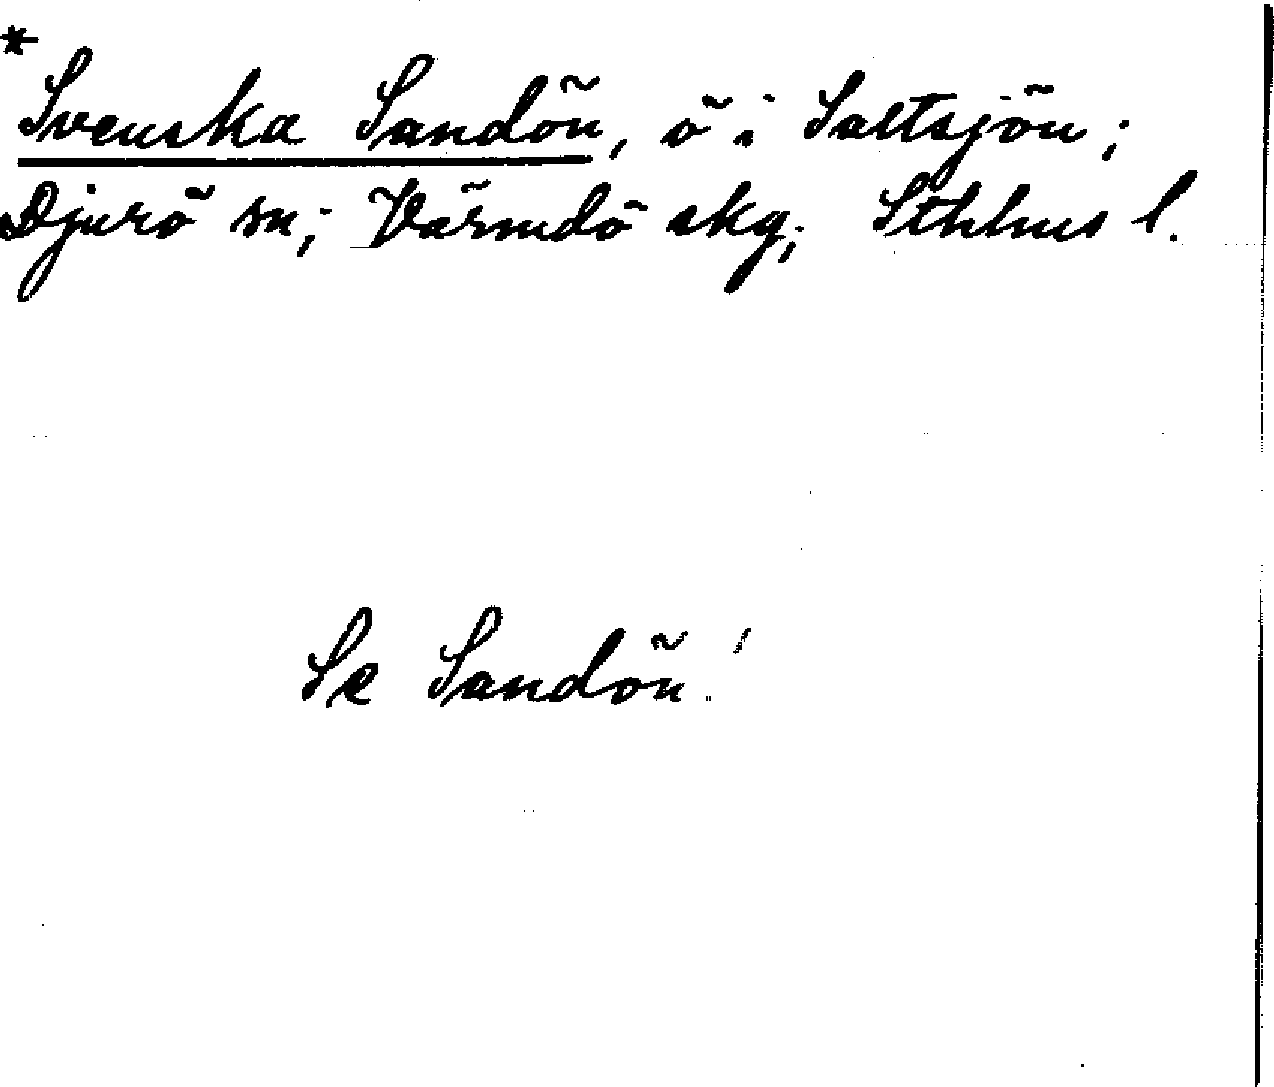 *
Svenska Sandön, ö i Saltsjön;
Djurö sn; Värmdö skg; Sthlms l.
Se Sandön!